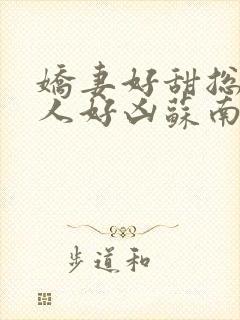 嬌妻好甜总
人好凶蘇南
步道和